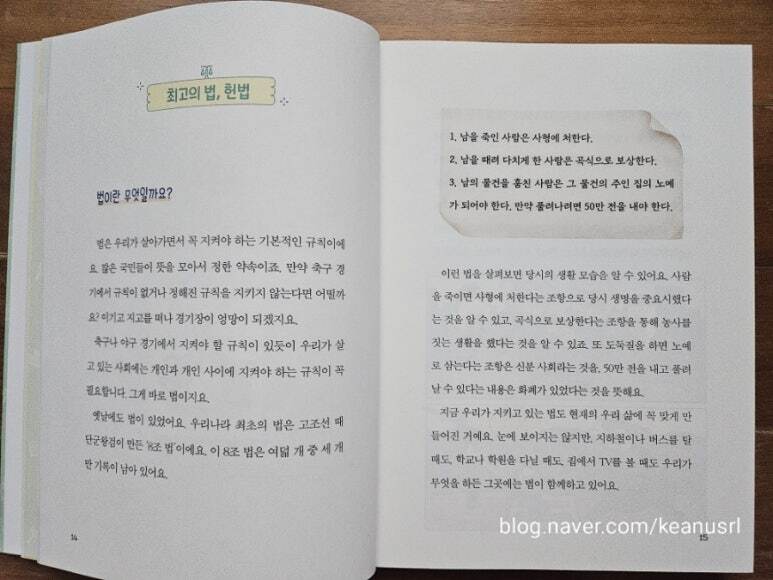 최고의 법, 헌법
법이란 무엇일까요?
법은 우리가 살아가면서 꼭 지켜야 하는 기본적인 규칙이에
요. 많은 국민들이 뜻을 모아서 정한 약속이죠. 만약 축구 경
기에서 규칙이 없거나 정해진 규칙을 지키지 않는다면 어떨까
요? 이기고 지고를 떠나 경기장이 엉망이 되겠지요.
축구나 야구 경기에서 지켜야 할 규칙이 있듯이 우리가 살
고 있는 사회에는 개인과 개인 사이에 지켜야 하는 규칙이 꼭
필요합니다. 그게 바로 법이지요.
옛날에도 법이 있었어요. 우리나라 최초의 법은 고조선 때
단군왕검이 만든 '8조 법'이에요. 이 8조 법은 여덟 개 중 세 개
만 기록이 남아 있어요.
14
1. 남을 죽인 사람은 사형에 처한다.
2. 남을 때려 다치게 한 사람은 곡식으로 보상한다.
3. 남의 물건을 훔친 사람은 그 물건의 주인 집의 노예
가 되어야 한다. 만약 풀려나려면 50만 전을 내야 한다.
이런 법을 살펴보면 당시의 생활 모습을 알 수 있어요. 사람
을 죽이면 사형에 처한다는 조항으로 당시 생명을 중요시했다
는 것을 알 수 있고, 곡식으로 보상한다는 조항을 통해 농사를
짓는 생활을 했다는 것을 알 수 있죠. 또 도둑질을 하면 노예
로 삼는다는 조항은 신분 사회라는 것을, 50만 전을 내고 풀려
날 수 있다는 내용은 화폐가 있었다는 것을 뜻해요.
지금 우리가 지키고 있는 법도 현재의 우리 삶에 꼭 맞게 만
들어진 거예요. 눈에 보이지는 않지만, 지하철이나 버스를 탈
때도, 학교나 학원을 다닐 때도, 집에서 TV를 볼 때도 우리가
무엇을 하든 그곳에는 법이 함께하고 있어요.
15
blog.naver.com/keanusrl